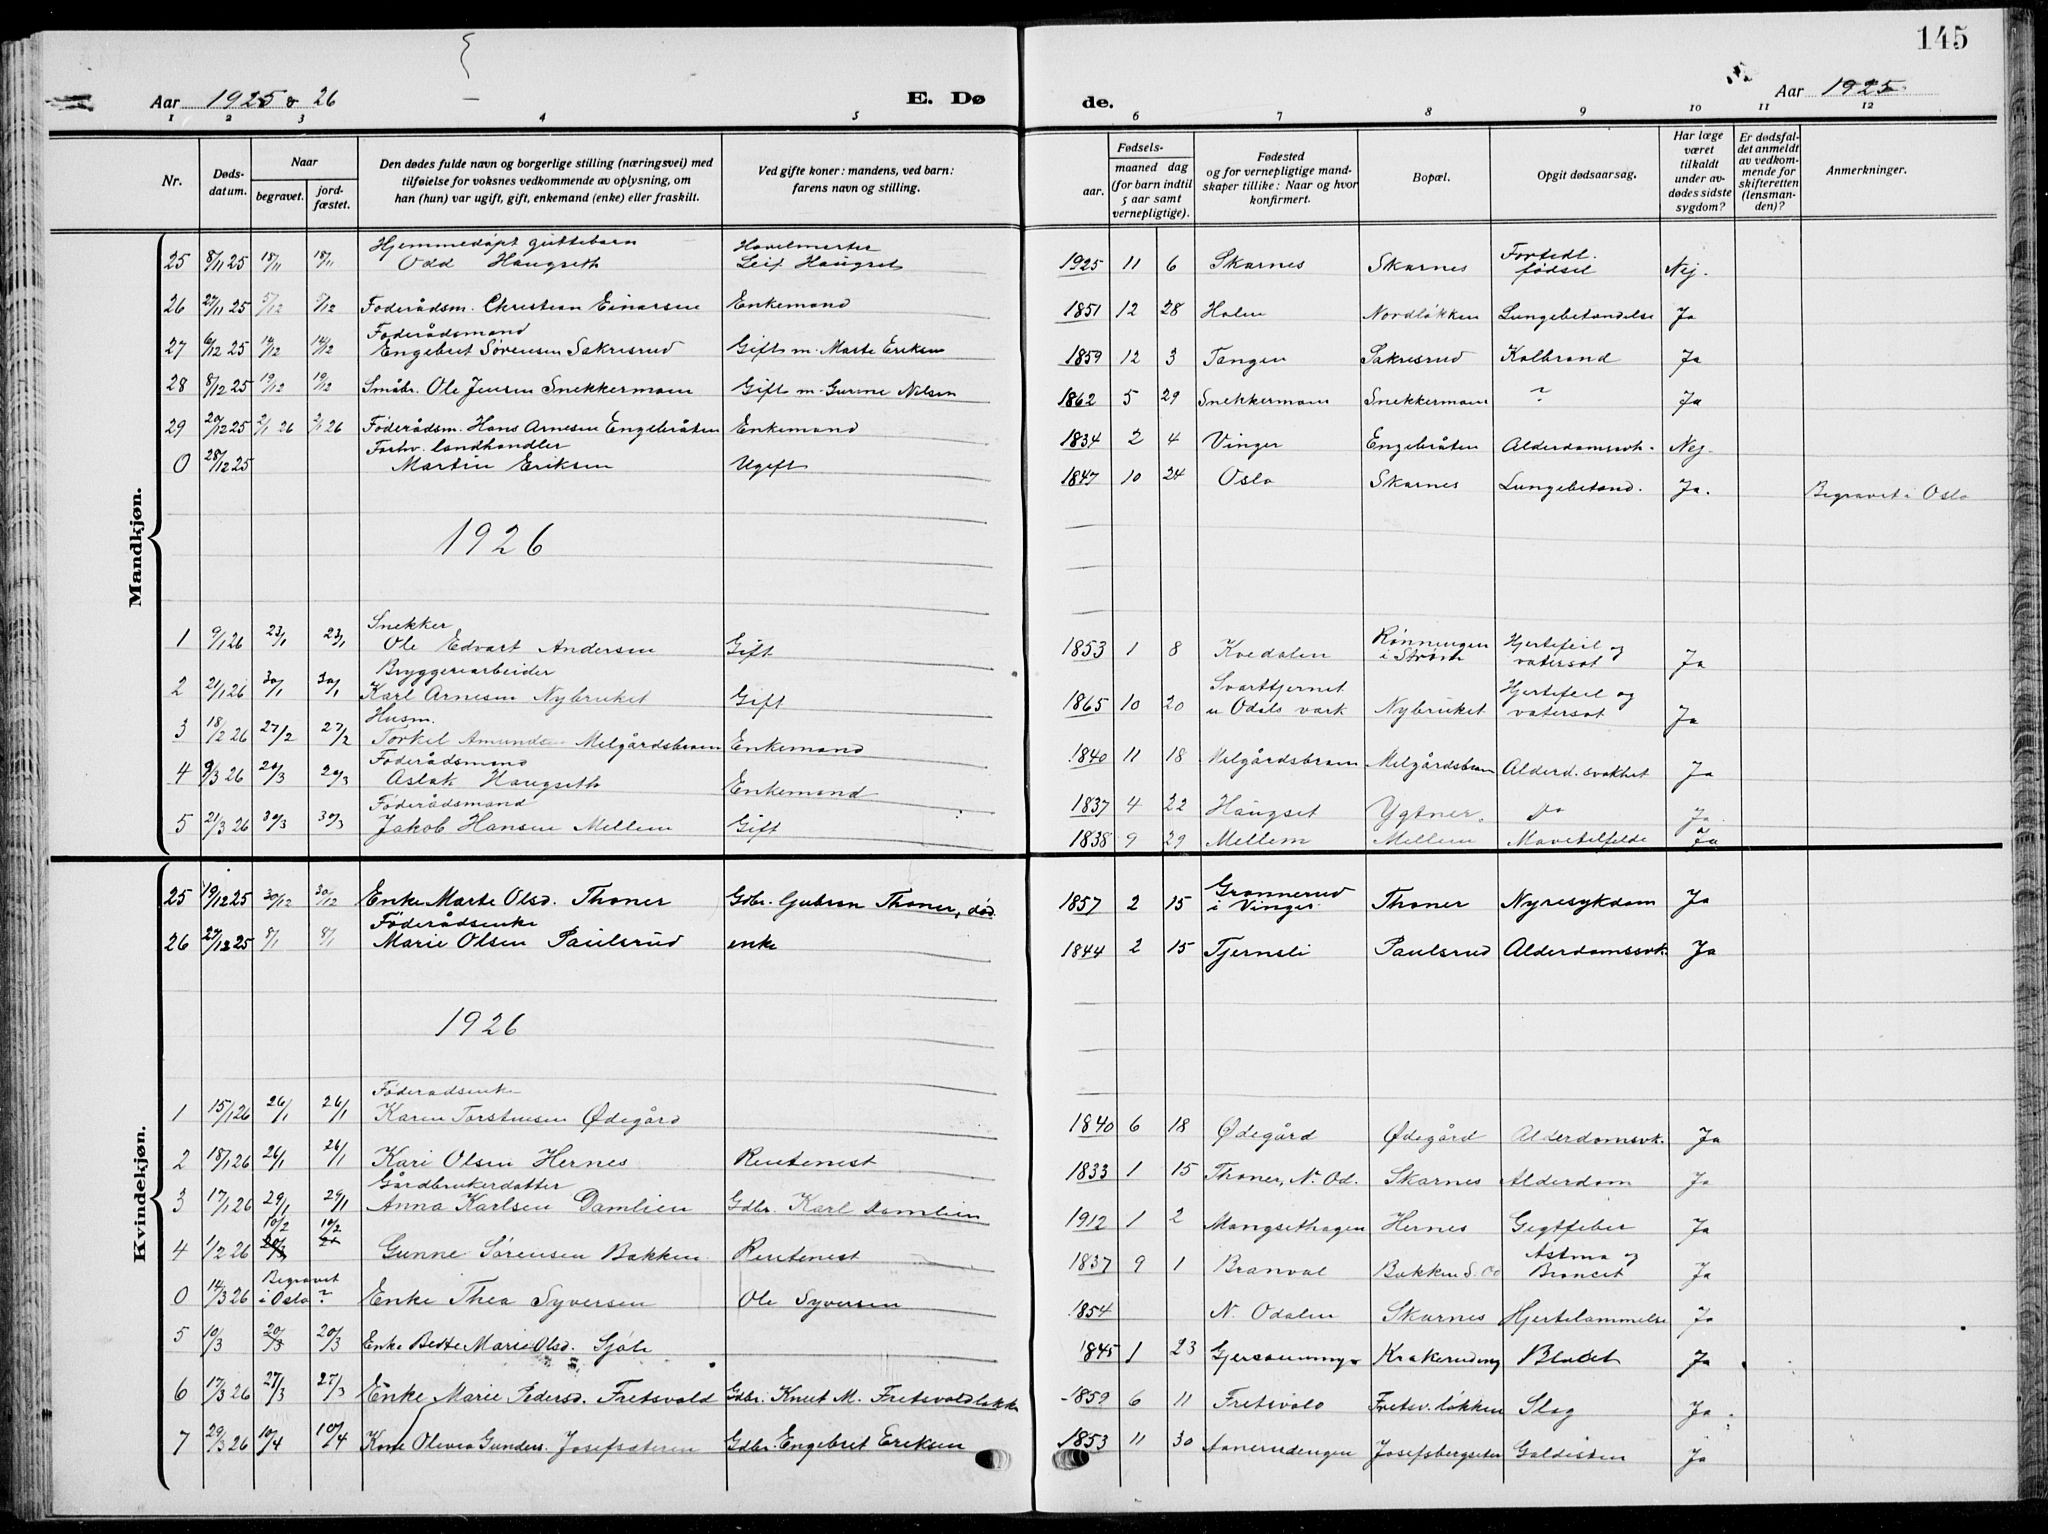 145
Aar 1925 & 26
E. Dø
de.
Aar 1925
1 2 3 4 5 6 7 8 9 10 11 12
Nr.
Døds-
datum.
Naar
begravet.
jord-
fæstet.
Den dødes fulde navn og borgerlige stilling (næringsvei) med
tilføielse for voksnes vedkommende av oplysning, om
han (hun) var ugift, gift, enkemand (enke) eller fraskilt.
Ved gifte koner: mandens, ved barn:
farens navn og stilling.
Fødsels-
aar.
maaned dag
(for barn indtil
5 aar samt
vernepligtige).
Fødested
og for vernepligtige mand-
skaper tillike: Naar og hvor
konfirmert.
Bopæl.
Opgit dødsaarsag.
Har læge
været
tilkaldt
under av-
dødes sidste
sygdom?
Er dødsfal-
det anmeldt
av vedkom-
mende for
skifteretten
(lensman-
den)?
Anmerkninger.
Mandkjøn.
Hjemmedøpt guttebarn
25 8/11 25 18/11 18/11 Odd Haugseth Leif Haugset 1925 11 6 Skarnes Skarnes fødsel Nej.
26 27/11 25 5/12 5/12 Føderådsm. Christian Einarsen Enkemand 1851 12 28 Holen Nordløkken Lungebetændelse Ja
Føderådsmand
27 6/12 25 14/12 14/12 Engebret Sørensen Sakrisrud Gift m. Marte Eriksen 1859 12 3 Tangen Sakrisrud Kolbrand Ja
28 8/12 25 19/12 19/12 Småbr. Ole Jensen Snekkermoen Gift m. Gunne Nilsen 1862 5 29 Snekkermoen Snekkermoen ? Ja
29 20/12 25 2/1 26 2/1 26 Føderådsm. Hans Arnesen Engebråten Enkemand 1834 2 4 Vinger Engebråten Alderdomssvk. Nej.
Forhv. landhandler
0 28/12 25 Martin Eriksen Ugift 1847 10 24 Oslo Skarnes Lungebetænd. Ja. Begravet i Oslo
1926
Snekker
1 9/1 26 23/1 23/1 Ole Edvart Andersen Gift 1853 1 8 Kvedalen Rønningen i Strøm Hjertefeil og vatersot Ja
Bryggeriarbeider
2 21/1 26 30/1 30/1 Karl Arnesen Nybruket Gift 1865 10 20 Svarttjernet u Odals verk Nybruket Hjertefeil og vatersot Ja
Husm.
3 18/2 26 27/2 27/2 Torkil Amundsen Melgårdsbraen Enkemand 1840 11 18 Melgårdsbraen Melgårdsbraen Alderd.svakhet Ja
Føderådsmand
4 9/3 26 20/3 20/3 Aslak Haugseth Enkemand 1837 4 22 Haugset Ygtner. do Ja
Føderådsmand
5 21/3 26 30/3 30/3 Jakob Hansen Mellem Gift 1838 9 29 Mellem Mellem Mavetilfelde Ja
Kvindekjøn.
25 19/12 25 30/12 30/12 Enke Marte Olsd. Thoner Gdbr. Gubran Thoner, død 1857 2 15 Grønnerud i Vinger Thoner Nyresykdom Ja
Føderådsenke
26 27/12 25 8/1 8/1 Marie Olsen Paulsrud enke 1844 2 15 Tjernsli Paulsrud Alderdomssvk. Ja
1926
Føderadsenke
1 15/1 26 26/1 26/1 Karen Torstensen Ødegård 1840 6 18 Ødegård Ødegård Alderdomsvk. Ja
2 18/1 26 26/1 26/1 Kari Olsen Hernes Rentenist 1833 1 15 Thoner, N. Od. Skarnes Alderdom Ja
Gårdbrukerdatter
3 17/1 26 29/1 29/1 Anna Karlsen Damlien Gdbr. Karl Damlien 1912 1 2 Mangsethagen Hernes Gigtfeber Ja
10/2 10/2
4 1/2 26 Gunne Sørensen Bakken Rentenist 1837 9 1 Branval Bakken S. Od Astma og Broncit Ja
0 14/3 26 Begravet i Oslo ? Enke Thea Syversen Ole Syversen 1854 N. Odalen Skarnes Hjertelammelse Ja
5 10/3 20/3 20/3 Enke Berte Marie Olsd. Sjøli 1845 1 23 Krakerudeng Blodet Ja
6 17/3 26 27/3 27/3 Enke Marie Pedersd. Fretsvold Gdbr. Knut M. Fretsvoldløkk 1859 6 11 Fretsvold Fretsv.løkken Slag Ja
7 29/3 26 10/4 10/4 Kone Olivia Gunders. Josefsæteren Gdbr. Engebret Eriksen 1853 11 30 Aanerudengen Josefsbergseter Galdesten Ja